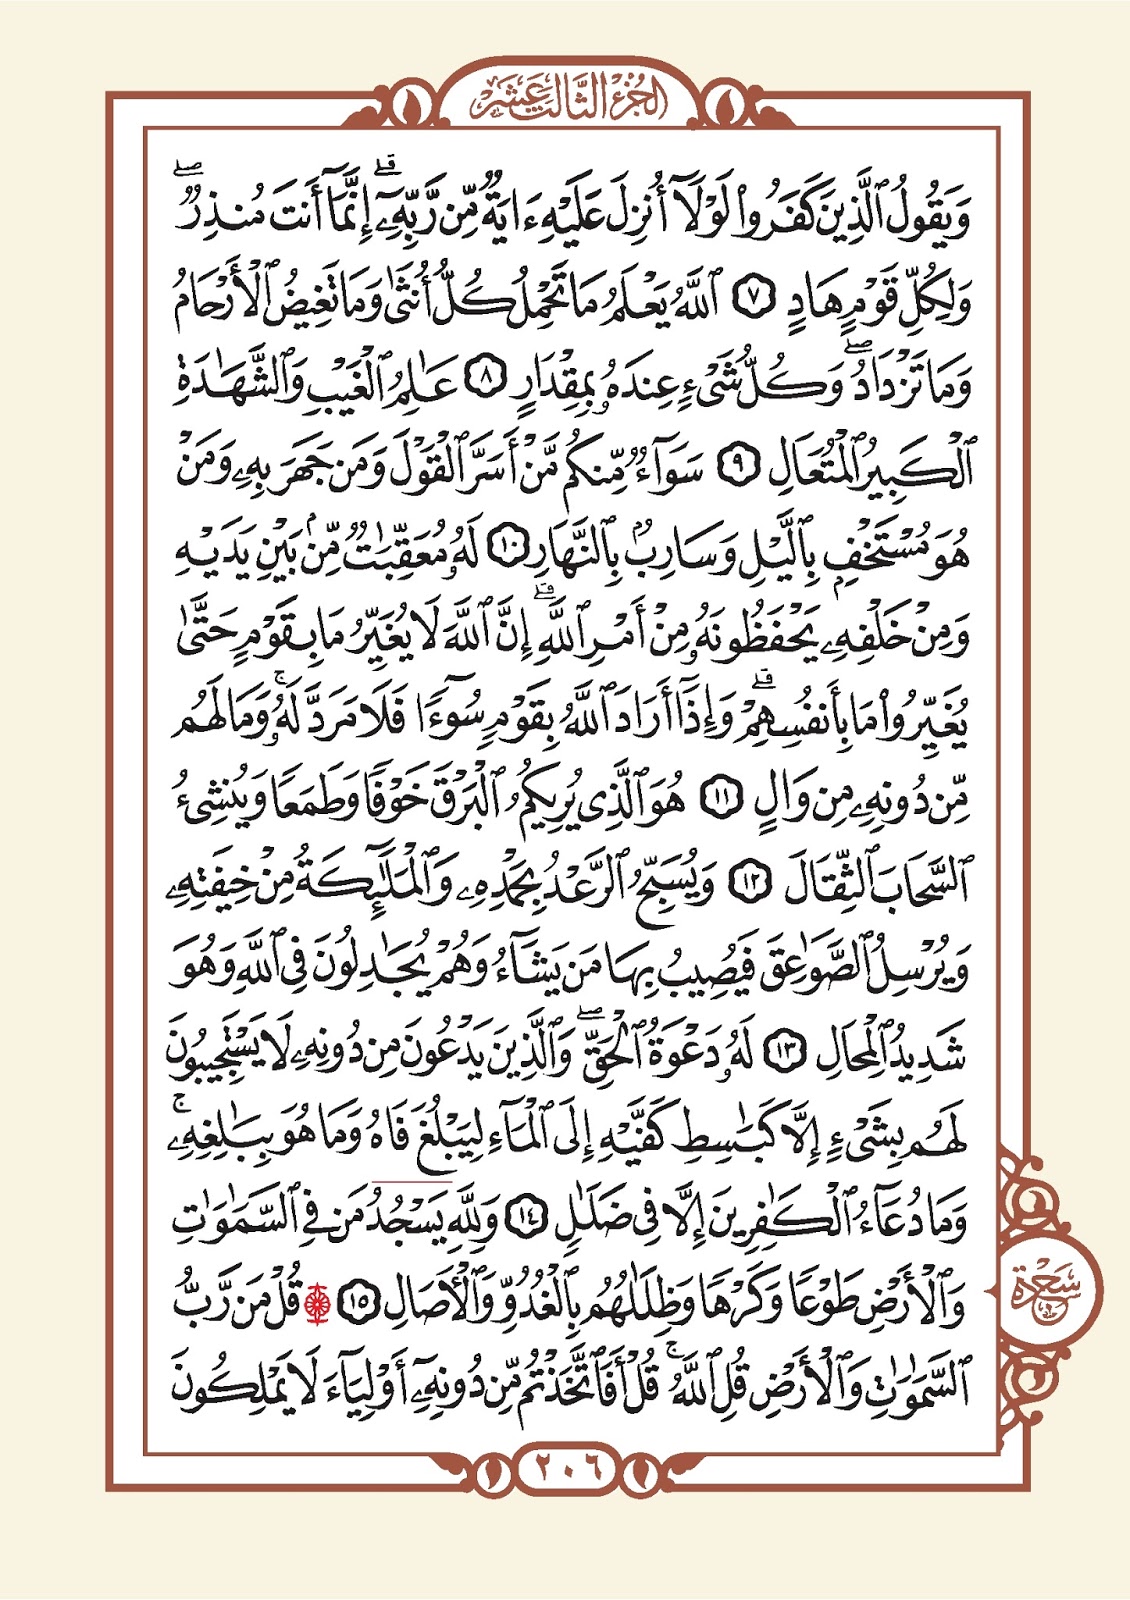 الجزء الثالث عشر
وَيَقُولُ ٱلَّذِينَ كَفَرُوا۟ لَوْلَآ أُنزِلَ عَلَيْهِ ءَايَةٌ مِّن رَّبِّهِۦٓ ۗ إِنَّمَآ أَنتَ مُنذِرٌ ۖ
وَلِكُلِّ قَوْمٍ هَادٍ ٧ ٱللَّهُ يَعْلَمُ مَا تَحْمِلُ كُلُّ أُنثَىٰ وَمَا تَغِيضُ ٱلْأَرْحَامُ
وَمَا تَزْدَادُ ۖ وَكُلُّ شَىْءٍ عِندَهُۥ بِمِقْدَارٍ ٨ عَـٰلِمُ ٱلْغَيْبِ وَٱلشَّهَـٰدَةِ
ٱلْكَبِيرُ ٱلْمُتَعَالِ ٩ سَوَآءٌ مِّنكُم مَّنْ أَسَرَّ ٱلْقَوْلَ وَمَن جَهَرَ بِهِۦ وَمَنْ
هُوَ مُسْتَخْفٍۭ بِٱلَّيْلِ وَسَارِبٌۢ بِٱلنَّهَارِ ١٠ لَهُۥ مُعَقِّبَـٰتٌ مِّنۢ بَيْنِ يَدَيْهِ
وَمِنْ خَلْفِهِۦ يَحْفَظُونَهُۥ مِنْ أَمْرِ ٱللَّهِ ۗ إِنَّ ٱللَّهَ لَا يُغَيِّرُ مَا بِقَوْمٍ حَتَّىٰ
يُغَيِّرُوا۟ مَا بِأَنفُسِهِمْ ۗ وَإِذَآ أَرَادَ ٱللَّهُ بِقَوْمٍ سُوٓءًا فَلَا مَرَدَّ لَهُۥ ۚ وَمَا لَهُم
مِّن دُونِهِۦ مِن وَالٍ ١١ هُوَ ٱلَّذِى يُرِيكُمُ ٱلْبَرْقَ خَوْفًا وَطَمَعًا وَيُنشِئُ
ٱلسَّحَابَ ٱلثِّقَالَ ١٢ وَيُسَبِّحُ ٱلرَّعْدُ بِحَمْدِهِۦ وَٱلْمَلَـٰٓئِكَةُ مِنْ خِيفَتِهِۦ
وَيُرْسِلُ ٱلصَّوَٰعِقَ فَيُصِيبُ بِهَا مَن يَشَآءُ وَهُمْ يُجَـٰدِلُونَ فِى ٱللَّهِ وَهُوَ
شَدِيدُ ٱلْمِحَالِ ١٣ لَهُۥ دَعْوَةُ ٱلْحَقِّ ۖ وَٱلَّذِينَ يَدْعُونَ مِن دُونِهِۦ لَا يَسْتَجِيبُونَ
لَهُم بِشَىْءٍ إِلَّا كَبَـٰسِطِ كَفَّيْهِ إِلَى ٱلْمَآءِ لِيَبْلُغَ فَاهُ وَمَا هُوَ بِبَـٰلِغِهِۦ ۚ
وَمَا دُعَآءُ ٱلْكَـٰفِرِينَ إِلَّا فِى ضَلَـٰلٍ ١٤ وَلِلَّهِ يَسْجُدُ مَن فِى ٱلسَّمَـٰوَٰتِ
وَٱلْأَرْضِ طَوْعًا وَكَرْهًا وَظِلَـٰلُهُم بِٱلْغُدُوِّ وَٱلْـَٔاصَالِ ١٥ ۞ قُلْ مَن رَّبُّ
ٱلسَّمَـٰوَٰتِ وَٱلْأَرْضِ قُلِ ٱللَّهُ ۚ قُلْ أَفَٱتَّخَذْتُم مِّن دُونِهِۦٓ أَوْلِيَآءَ لَا يَمْلِكُونَ
سجدة
٢٠٦